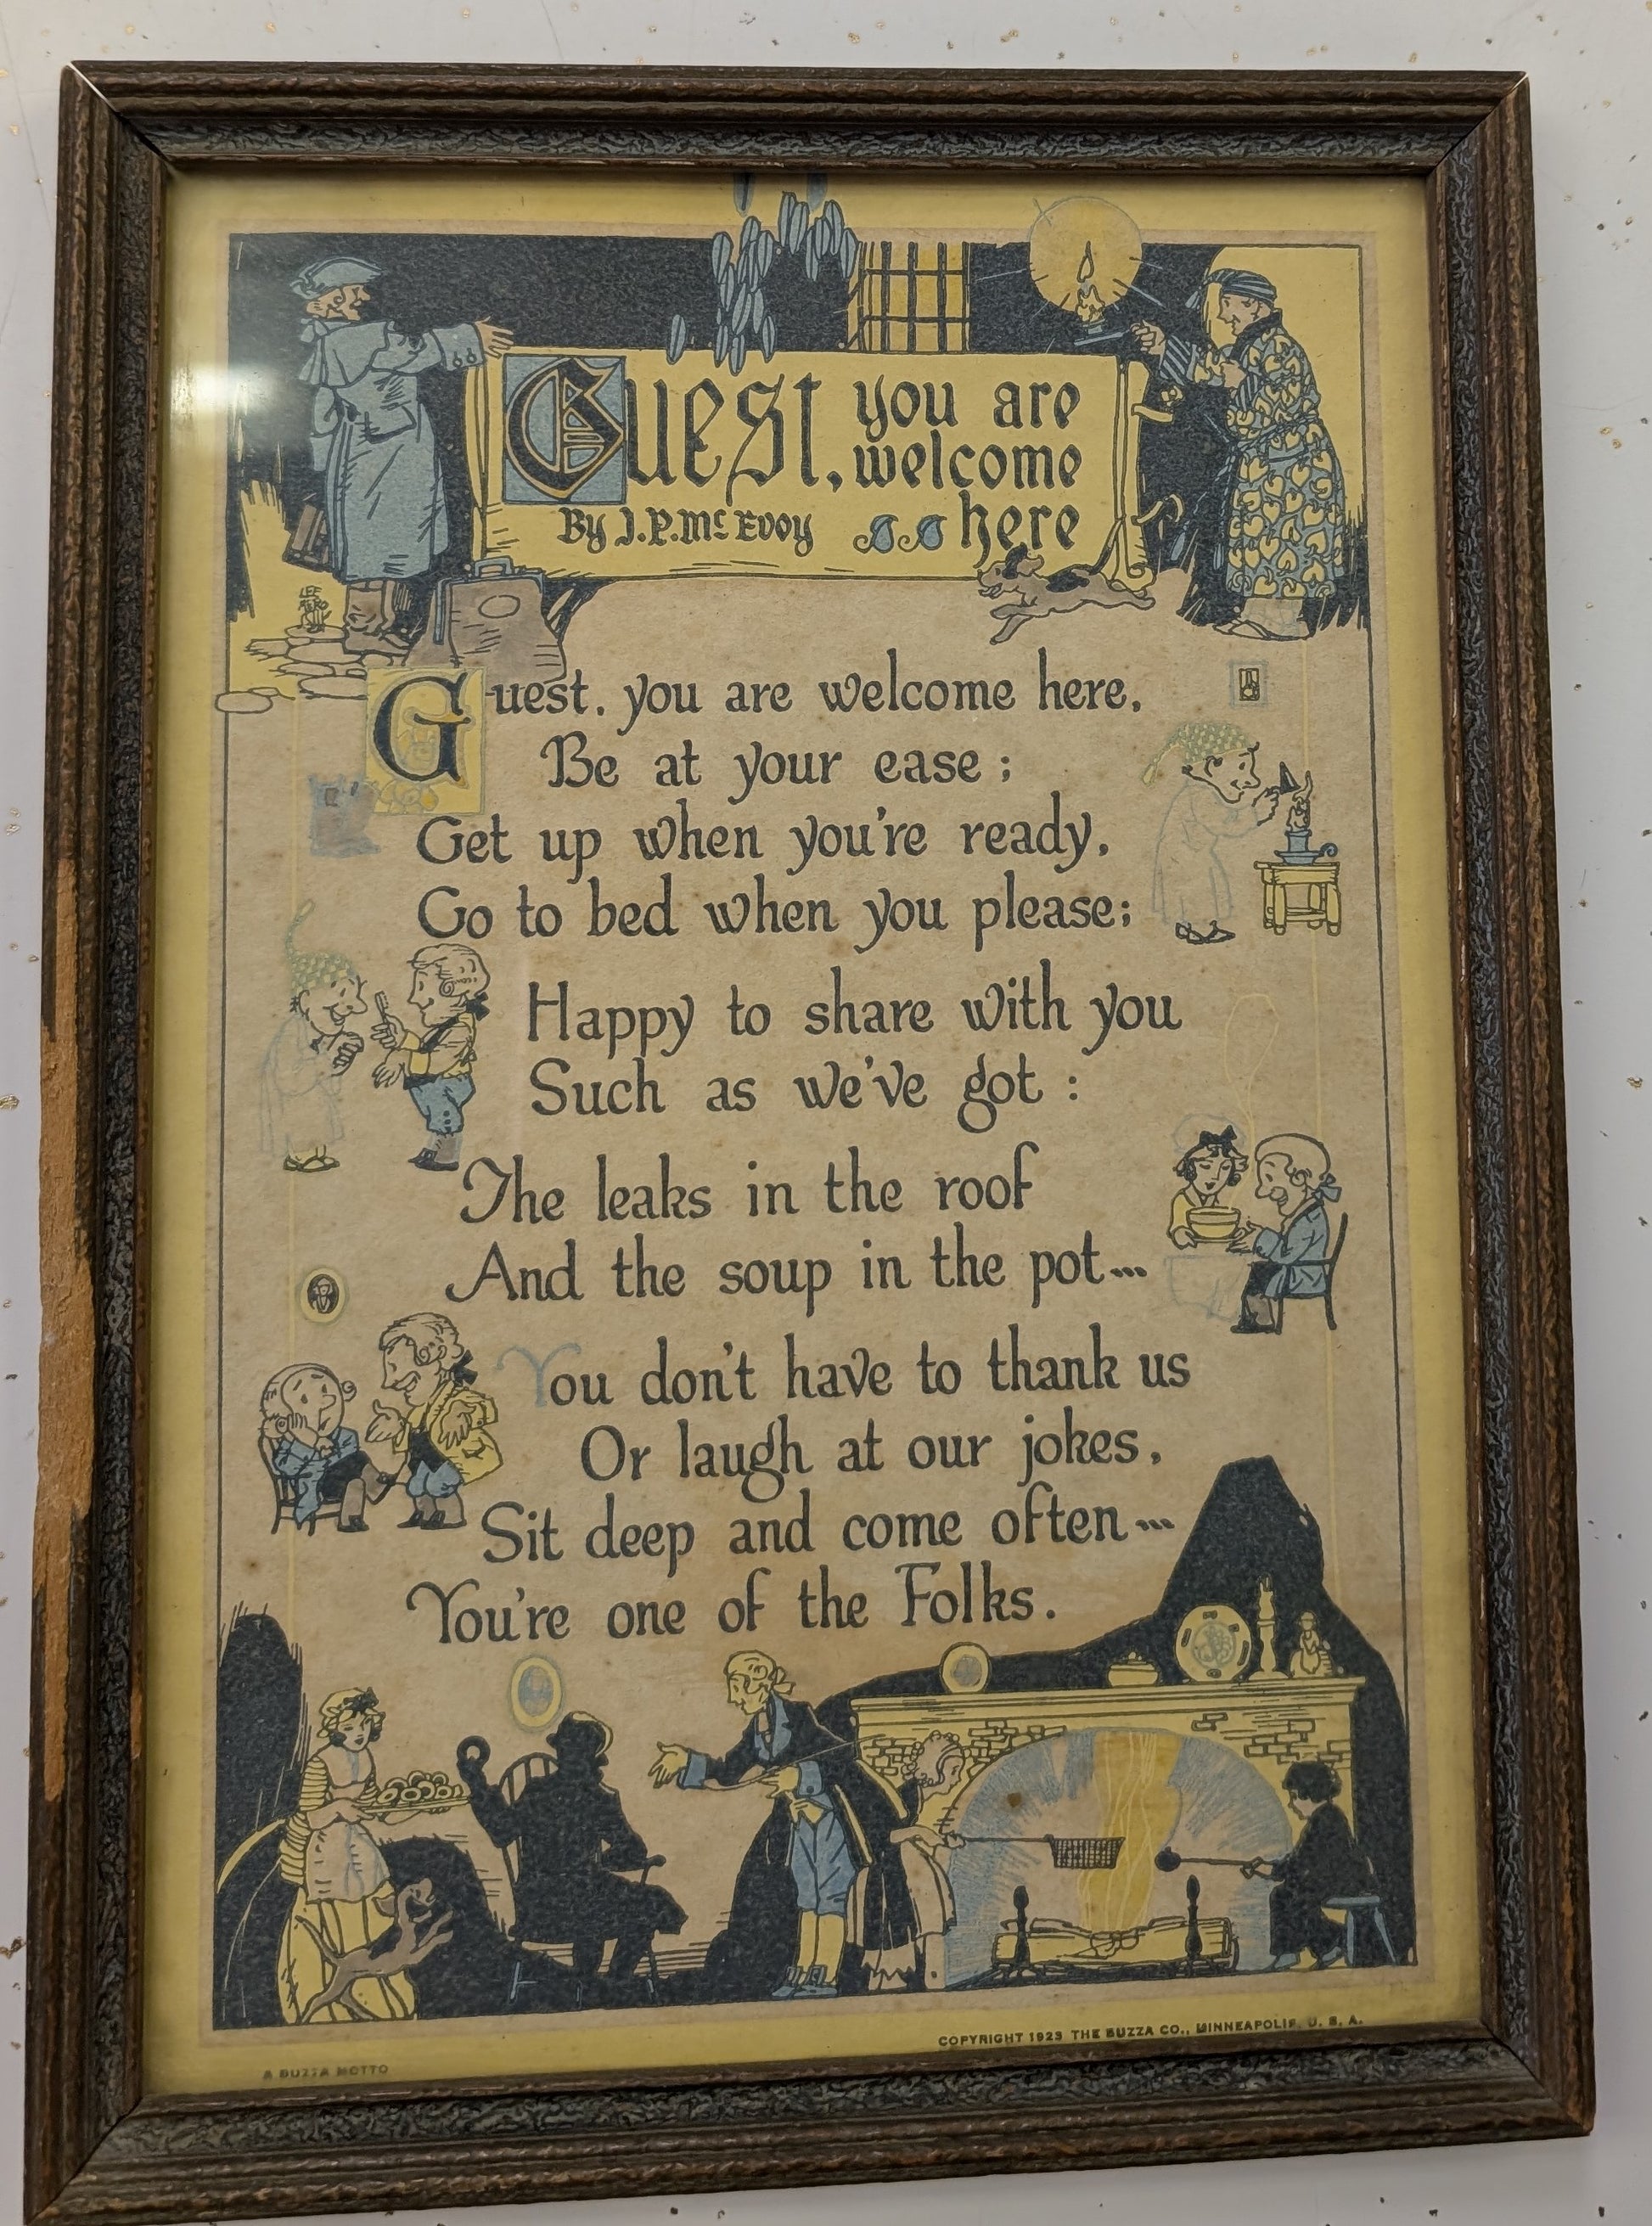 Guest, you are
welcome
By J.P. Mc Evoy here
LEE
MERO
Guest, you are welcome here,
Be at your ease;
Get up when you're ready,
Go to bed when you please;
Happy to share with you
Such as we've got:
The leaks in the roof
And the soup in the pot...
You don't have to thank us
Or laugh at our jokes,
Sit deep and come often...
You're one of the Folks.
COPYRIGHT 1923 THE BUZZA CO., MINNEAPOLIS, U. S. A.
A BUZZA MOTTO